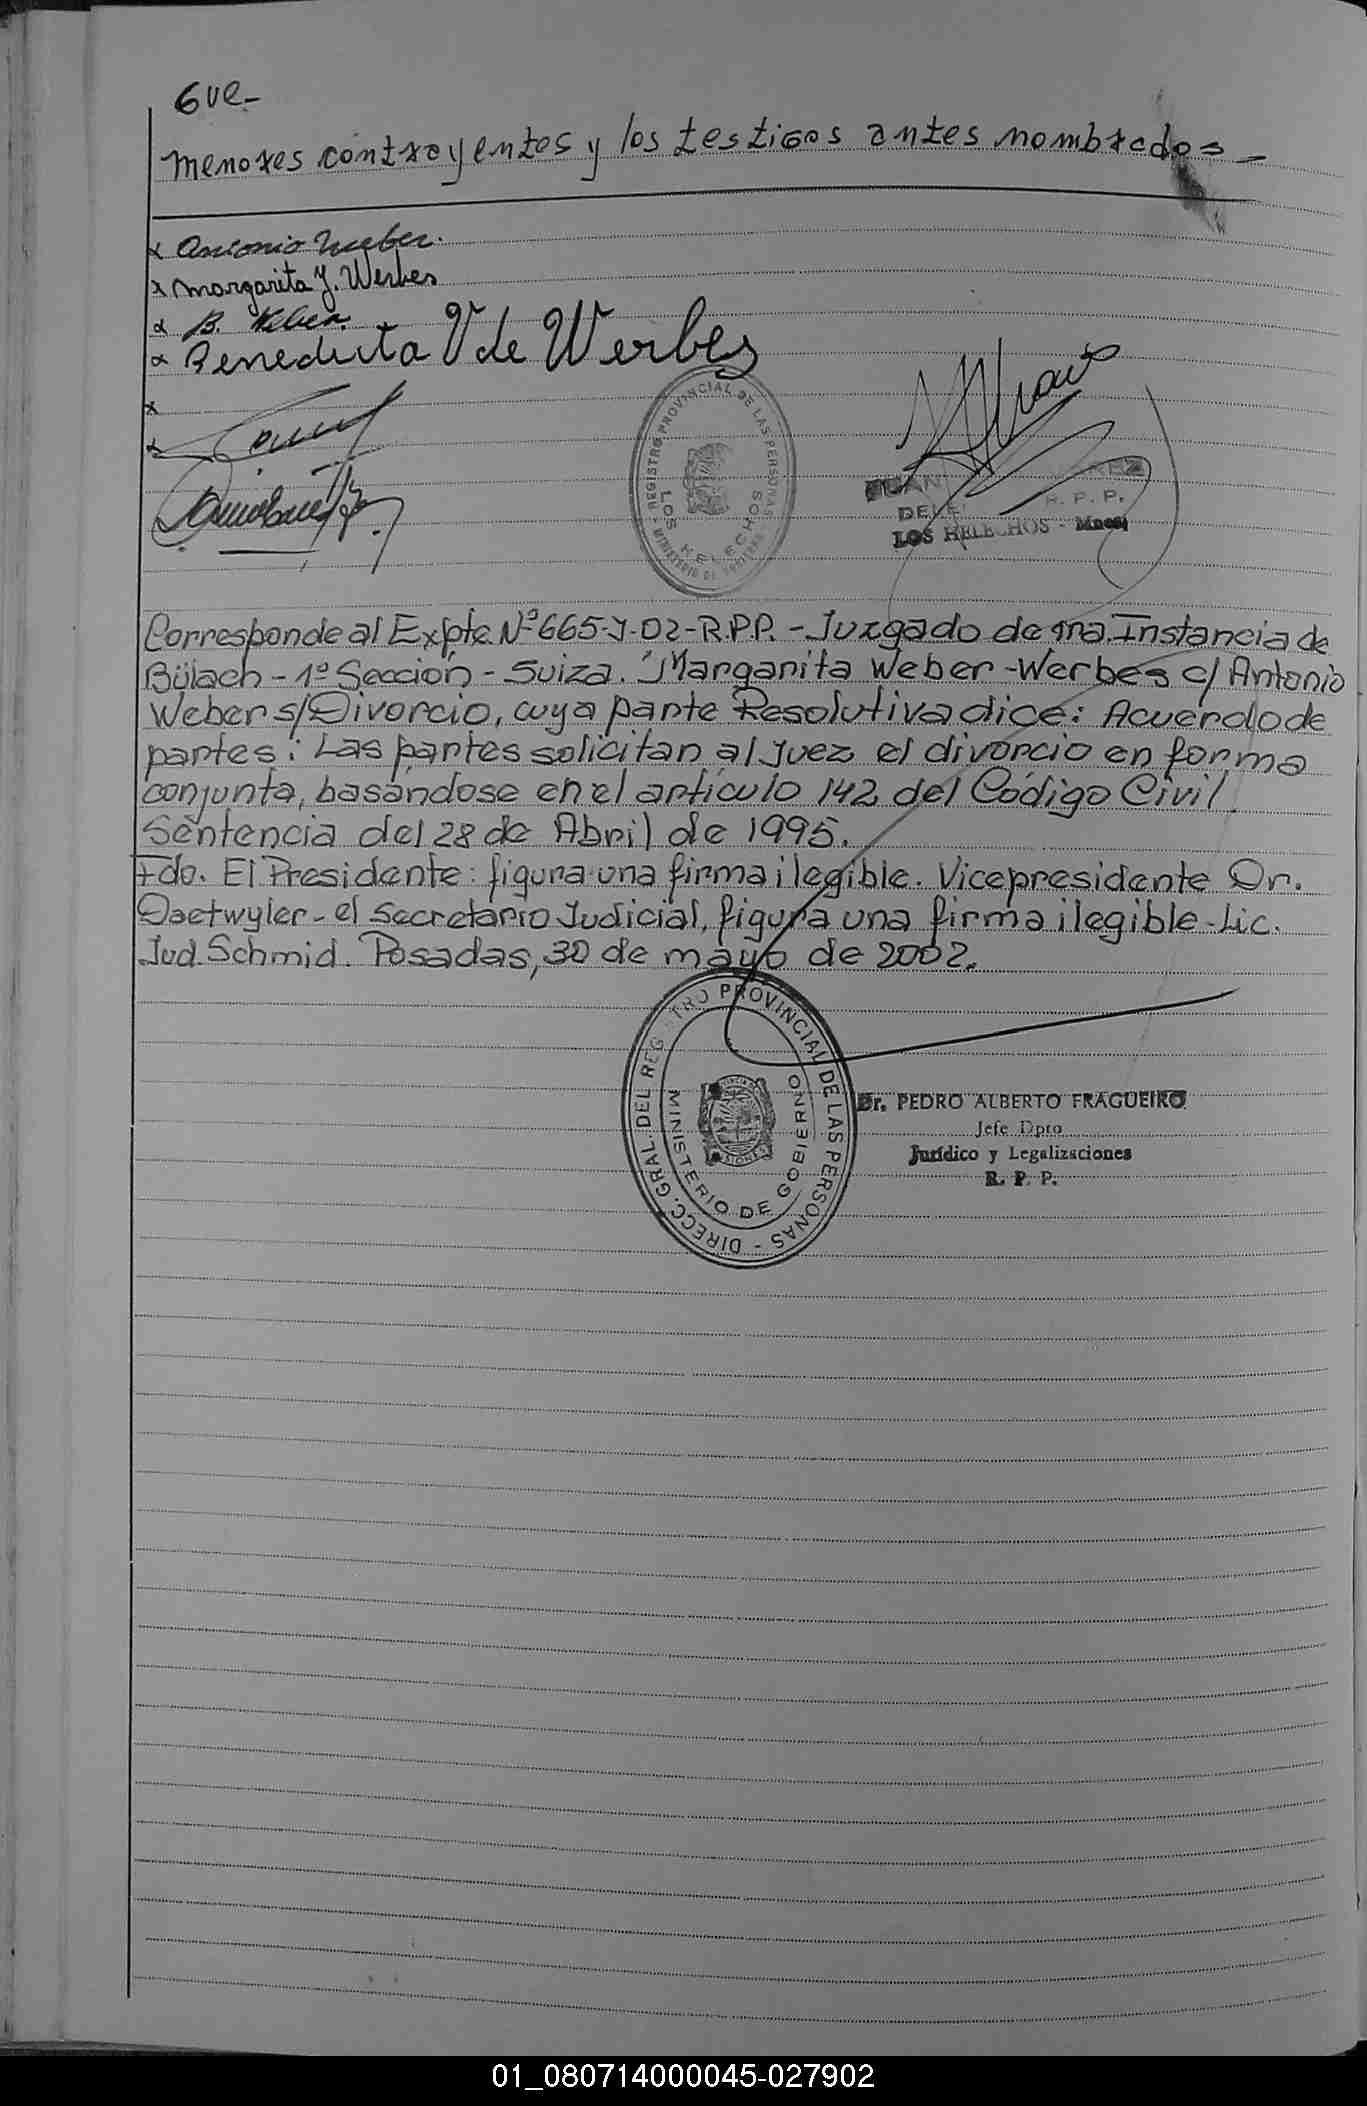 6ve-
menores contrayentes y los testigos antes nombrados -
x Antonio Weber.
x Margarita J. Werbes
x B. Weber.
x Benedicta V de Werbes
x
x
REGISTRO PROVINCIAL DE LAS PERSONAS
LOS HELECHOS
MINISTERIO DE GOBIERNO
JUAN
R. P. P.
LOS HELECHOS - Mnes.
Corresponde al Expte Nº 665-J-02-R.P.P. - Juzgado de 1ra Instancia de
Bülach - 1º Sección - Suiza. "Margarita Weber-Werbes c/ Antonio
Weber s/ Divorcio, cuya parte Resolutiva dice: Acuerdo de
partes: Las partes solicitan al Juez el divorcio en forma
conjunta, basándose en el artículo 142 del Código Civil.
Sentencia del 28 de Abril de 1995.
Fdo. El Presidente: figura una firma ilegible. Vicepresidente Dr.
Daetwyler - el Secretario Judicial, figura una firma ilegible - Lic.
Jud. Schmid. Posadas, 30 de mayo de 2002.
DIRECC. GRAL. DEL REGISTRO PROVINCIAL DE LAS PERSONAS -
MINISTERIO DE GOBIERNO
Dr. PEDRO ALBERTO FRAGUEIRO
Jefe Dpto
Jurídico y Legalizaciones
R. P. P.
01_080714000045-027902